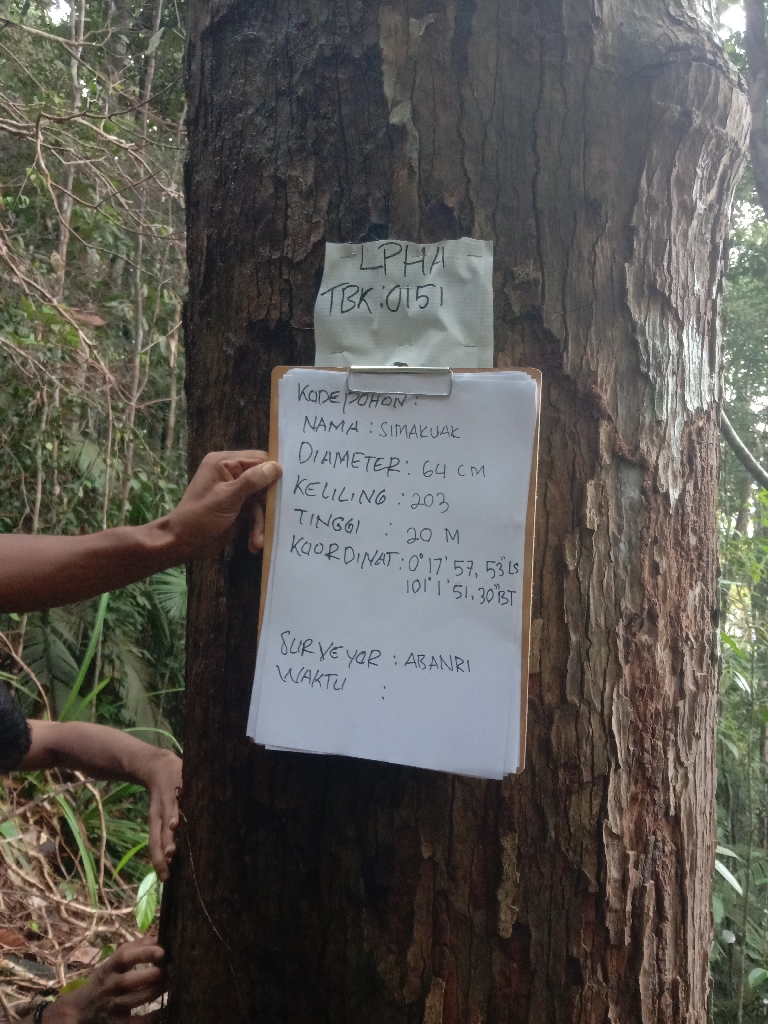 LPHA
TBK:0151
KODE POHON :
NAMA : SIMAKUAK
DIAMETER : 64 CM
KELILING : 203
TINGGI : 20 M
KOORDINAT : 0° 17' 57, 53" LS
101° 1' 51, 30" BT
SURVEYOR : ABANRI
WAKTU :